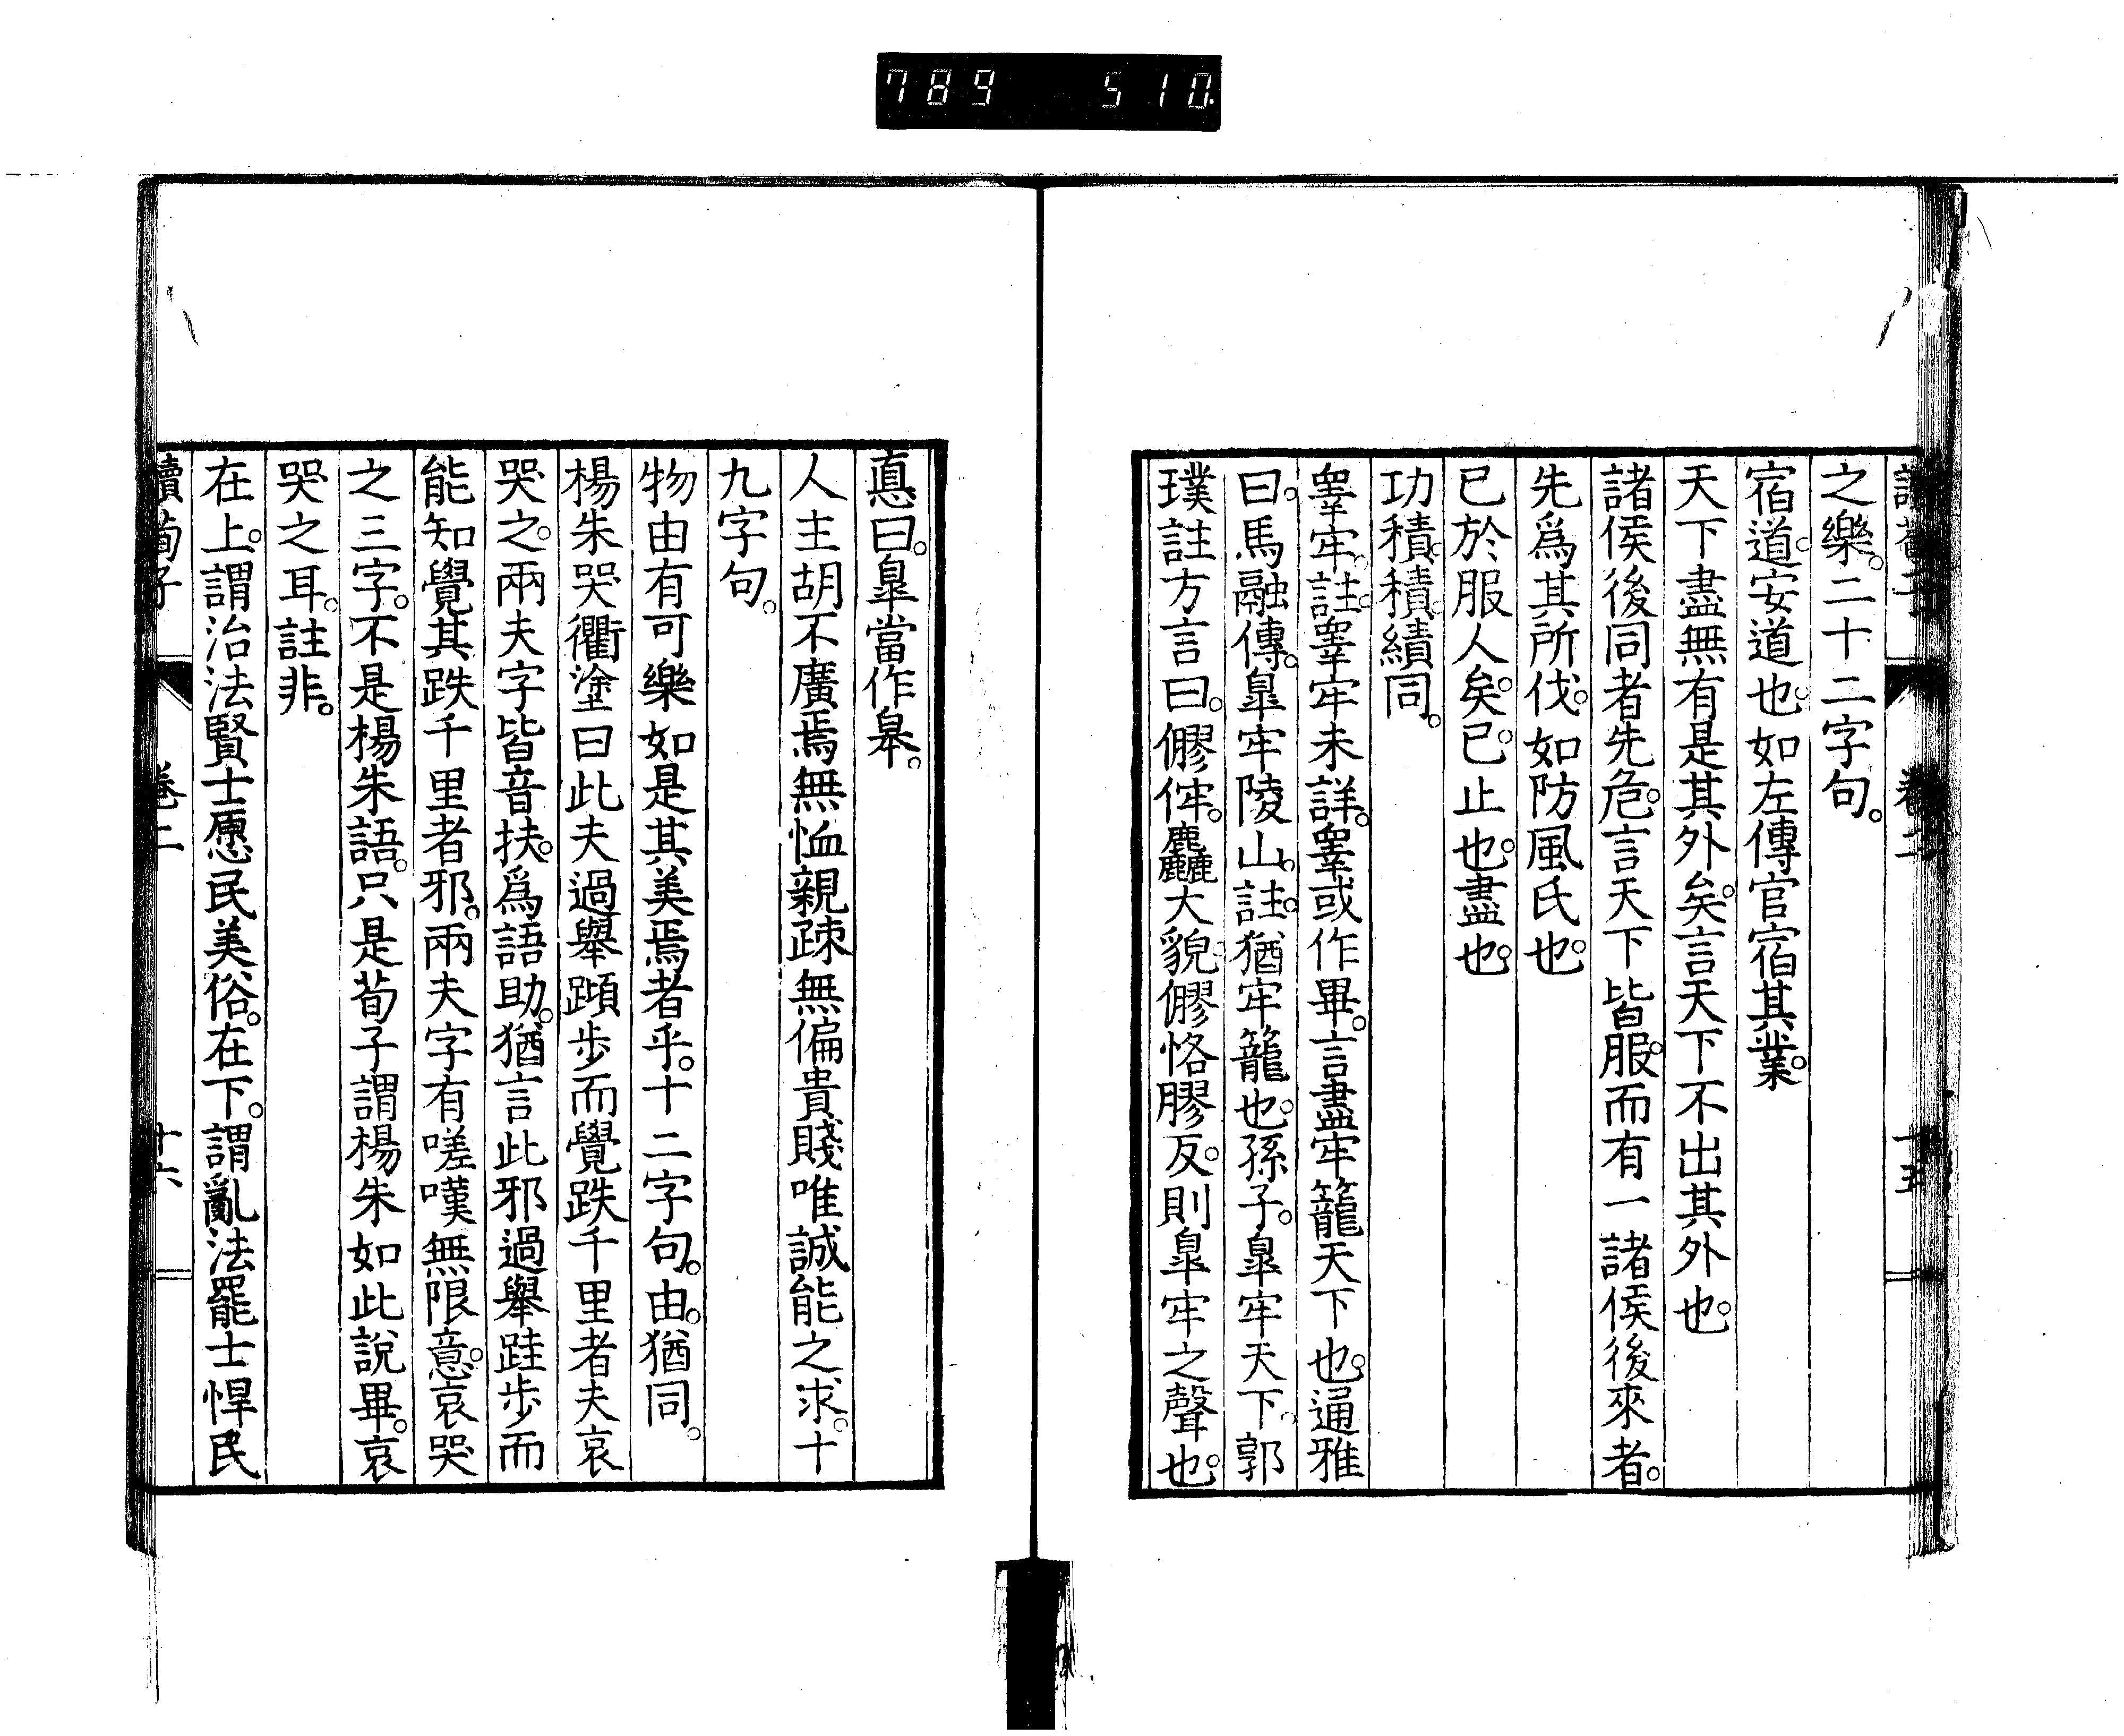 789 510
讀荀子 卷二 十五
之樂。二十二字句。
宿道。安道也。如左傳官宿其業。
天下盡無有是其外矣。言天下不出其外也。
諸侯後同者先危。言天下皆服。而有一諸侯後來者。
先爲其所伐。如防風氏也。
已於服人矣。已。止也。盡也。
功積。積。績同。
睾牢。註。睾牢未詳。睾或作畢。言盡牢籠天下也。通雅
曰。馬融傳。皐牢陵山。註。猶牢籠也。孫子。皐牢天下。郭
璞註方言曰。㺒㑆。麤大貌。㺒恪膠反。則皐牢之聲也。
悳曰。皐當作皋。
人主胡不廣焉無恤親疎無偏貴賤唯誠能之求。十
九字句。
物由有可樂如是其美焉者乎。十二字句。由。猶同。
楊朱哭衢塗曰此夫過舉蹞步而覺跌千里者夫哀
哭之。兩夫字皆音扶。爲語助。猶言此邪過舉跬步而
能知覺其跌千里者邪。兩夫字有嗟嘆無限意。哀哭
之三字。不是楊朱語。只是荀子謂楊朱如此說畢。哀
哭之耳。註非。
在上。謂治法賢士愿民美俗。在下。謂亂法罷士悍民
讀荀子 卷二 十六